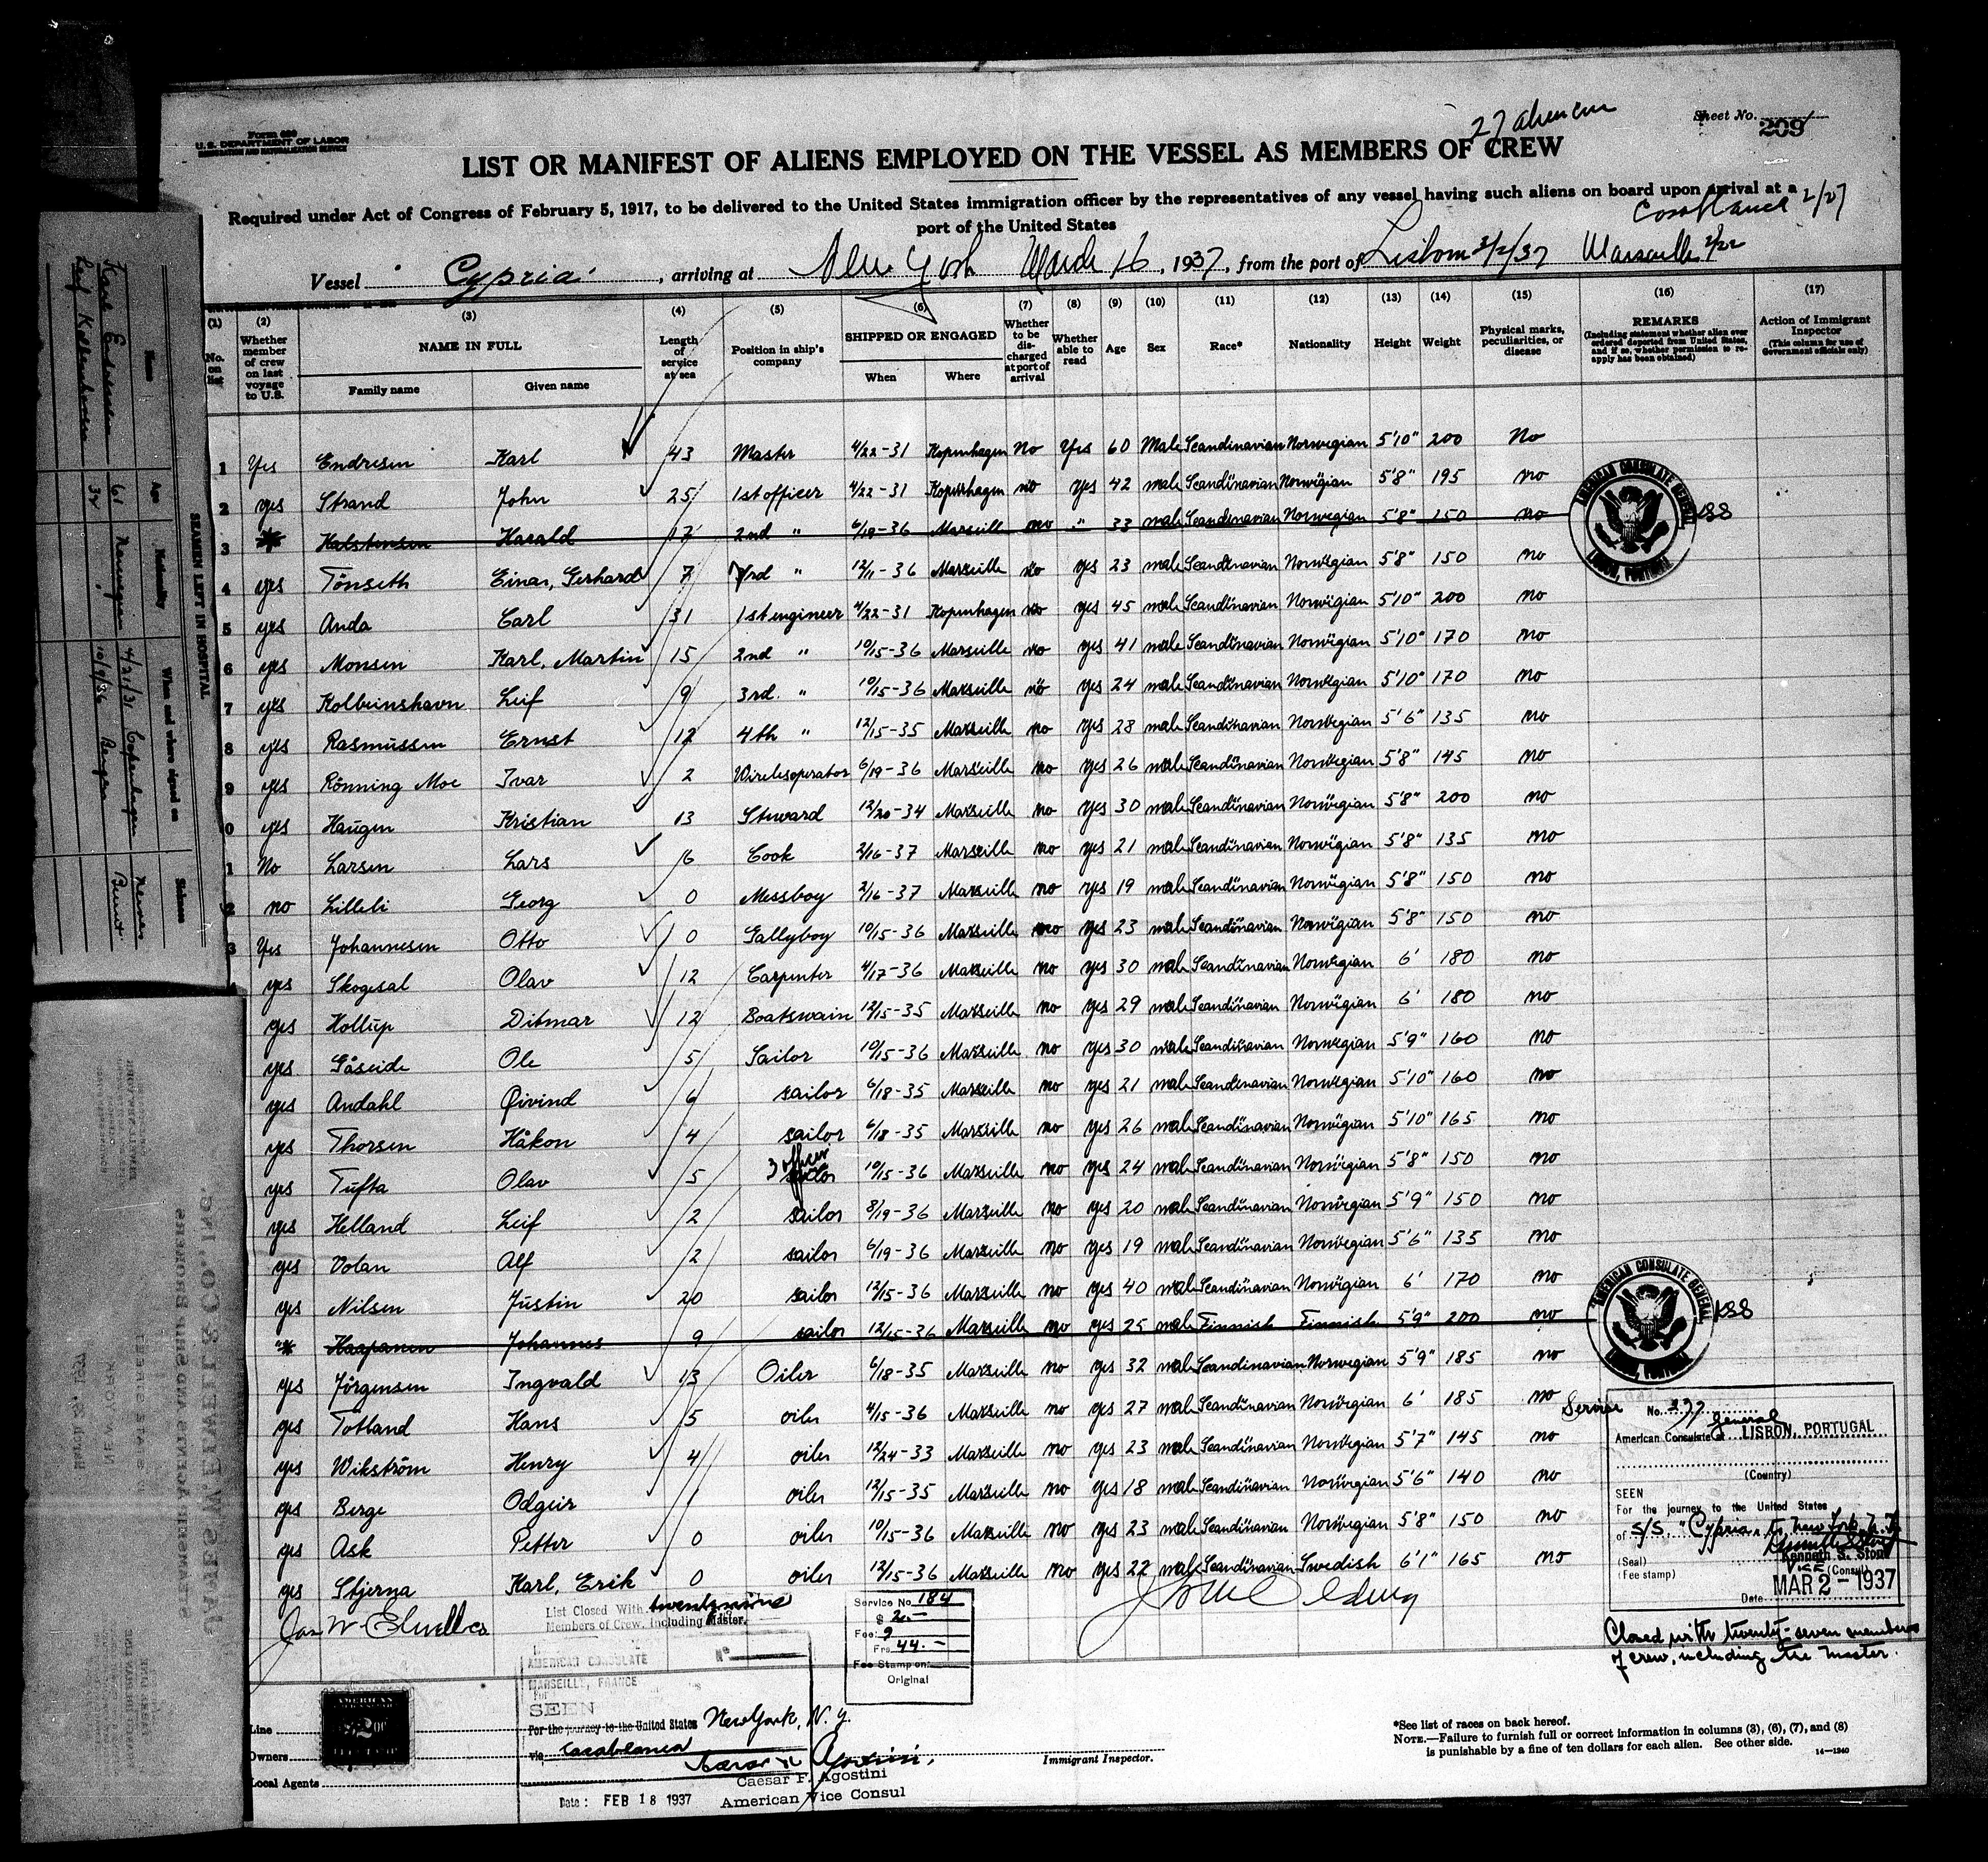 Form 680
U.S. DEPARTMENT OF LABOR
IMMIGRATION AND NATURALIZATION SERVICE
Sheet No. 209
LIST OR MANIFEST OF ALIENS EMPLOYED ON THE VESSEL AS MEMBERS OF CREW
Required under Act of Congress of February 5, 1917, to be delivered to the United States immigration officer by the representatives of any vessel having such aliens on board upon arrival at a
port of the United States
Casablanca 2/27
Vessel Cypria, arriving at New York March 16, 1937, from the port of Lisbon 3/2/37 Marseille 2/22
(1) No. on list
(2) Whether member of crew on last voyage to U.S.
(3) NAME IN FULL Family name Given name
(4) Length of service at sea
(5) Position in ship's company
(6) SHIPPED OR ENGAGED When Where
(7) Whether to be discharged at port of arrival
(8) Whether able to read
(9) Age
(10) Sex
(11) Race*
(12) Nationality
(13) Height
(14) Weight
(15) Physical marks, peculiarities, or disease
(16) REMARKS (Including statement whether alien ever ordered deported from United States, and if so, whether permission to reapply has been obtained)
(17) Action of Immigrant Inspector (This column for use of Government officials only)
1 Yes Endresen Karl 43 Master 4/22-31 Kopenhagen No Yes 60 Male Scandinavian Norwegian 5'10" 200 No
2 yes Strand John 25 1st officer 4/22-31 Kopenhagen no yes 42 male Scandinavian Norwegian 5'8" 195 no
3 Halstensen Harald 17 2nd " 6/19-36 Marseille no " 33 male Scandinavian Norwegian 5'8" 150 no
4 yes Tönseth Einar, Gerhard 7 3rd " 12/11-36 Marseille no yes 23 male Scandinavian Norwegian 5'8" 150 no
5 yes Anda Carl 31 1st engineer 4/22-31 Kopenhagen no yes 45 male Scandinavian Norwegian 5'10" 200 no
6 yes Monsen Karl, Martin 15 2nd " 10/15-36 Marseille no yes 41 male Scandinavian Norwegian 5'10" 170 no
7 yes Kolbeinshavn Leif 9 3rd. " 10/15-36 Marseille no yes 24 male Scandinavian Norwegian 5'10" 170 no
8 yes Rasmussen Ernst 12 4th " 12/15-35 Marseille no yes 28 male Scandinavian Norwegian 5'6" 135 no
9 yes Rönning Moe Ivar 2 Wirelesoperator 6/19-36 Marseille no yes 26 male Scandinavian Norwegian 5'8" 145 no
0 yes Haugen Kristian 13 Steward 12/20-34 Marseille no yes 30 male Scandinavian Norwegian 5'8" 200 no
1 No Larsen Lars 6 Cook 2/16-37 Marseille no yes 21 male Scandinavian Norwegian 5'8" 135 no
2 no Lilleli Georg 0 Messboy 2/16-37 Marseille no yes 19 male Scandinavian Norwegian 5'8" 150 no
3 Yes Johannesen Otto 0 Gallyboy 10/15-36 Marseille no yes 23 male Scandinavian Norwegian 5'8" 150 no
yes Skogesal Olav 12 Carpenter 4/17-36 Marseille no yes 30 male Scandinavian Norwegian 6' 180 no
yes Hollup Ditmar 12 Boatswain 12/15-35 Marseille no yes 29 male Scandinavian Norwegian 6' 180 no
yes Gåseide Ole 5 Sailor 10/15-36 Marseille no yes 30 male Scandinavian Norwegian 5'9" 160 no
yes Andahl Øivind 6 sailor 6/18-35 Marseille no yes 21 male Scandinavian Norwegian 5'10" 160 no
yes Thorsen Håkon 4 sailor 6/18-35 Marseille no yes 26 male Scandinavian Norwegian 5'10" 165 no
yes Tufta Olav 5 3 officer sailor 10/15-36 Marseille no yes 24 male Scandinavian Norwegian 5'8" 150 no
yes Helland Leif 2 sailor 8/19-36 Marseille no yes 20 male Scandinavian Norwegian 5'9" 150 no
yes Volan Alf 2 sailor 6/19-36 Marseille no yes 19 male Scandinavian Norwegian 5'6" 135 no
yes Nilsen Justin 20 sailor 12/15-36 Marseille no yes 40 male Scandinavian Norwegian 6' 170 no
Haapanen Johannes 9 sailor 12/15-36 Marseille no yes 25 male Finnish Finnish 5'9" 200 no
yes Jörgensen Ingvald 13 Oiler 6/18-35 Marseille no yes 32 male Scandinavian Norwegian 5'9" 185 no
yes Totland Hans 5 oiler 4/15-36 Marseille no yes 27 male Scandinavian Norwegian 6' 185 no
yes Wikström Henry 4 oiler 12/24-33 Marseille no yes 23 male Scandinavian Norwegian 5'7" 145 no
yes Berge Odgeir 1 oiler 12/15-35 Marseille no yes 18 male Scandinavian Norwegian 5'6" 140 no
yes Ask Petter 0 oiler 10/15-36 Marseille no yes 23 male Scandinavian Norwegian 5'8" 150 no
yes Stjerna Karl, Erik 0 oiler 12/15-36 Marseille no yes 22 male Scandinavian Swedish 6'1" 165 no
AMERICAN CONSULATE GENERAL LISBON, PORTUGAL KSS
AMERICAN CONSULATE GENERAL LISBON, PORTUGAL KSS
Service No. 237
General
American Consulate at LISBON, PORTUGAL
(Country)
SEEN
For the journey to the United States
of S/S. "Cypria" to New York N.Y.
Kenneth S. Stout
(Seal) Vice (Consul)
(Fee stamp)
Date MAR 2 - 1937
Closed with twenty-seven members
of crew, including the master.
Jas W Elwell Co
List Closed With twentynine
Members of Crew, including Master.
Service No. 184
$ 2.-
Fee: 9
Frs 44.-
Fee Stamp on:
Original
No
AMERICAN CONSULATE
MARSEILLE, FRANCE
SEEN
For the journey to the United States New York, N.Y.
via Casablanca
Caesar F. Agostini
American Vice Consul
Date: FEB 18 1937
Line
Owners
Local Agents
Immigrant Inspector.
*See list of races on back hereof.
NOTE.—Failure to furnish full or correct information in columns (3), (6), (7), and (8)
is punishable by a fine of ten dollars for each alien. See other side.
14—1240
SEAMEN LEFT IN HOSPITAL
Name Age Nationality When and where signed on Sickness
Karl Endresen 61 Norwegian 4/21/31 Copenhagen
Leif Kolbeinhavn 34 " 10/9/36 Bergen
JAMES W. ELWELL & CO., INC.
STEAMER AGENTS AND SHIP BROKERS
17 STATE STREET
NEW YORK